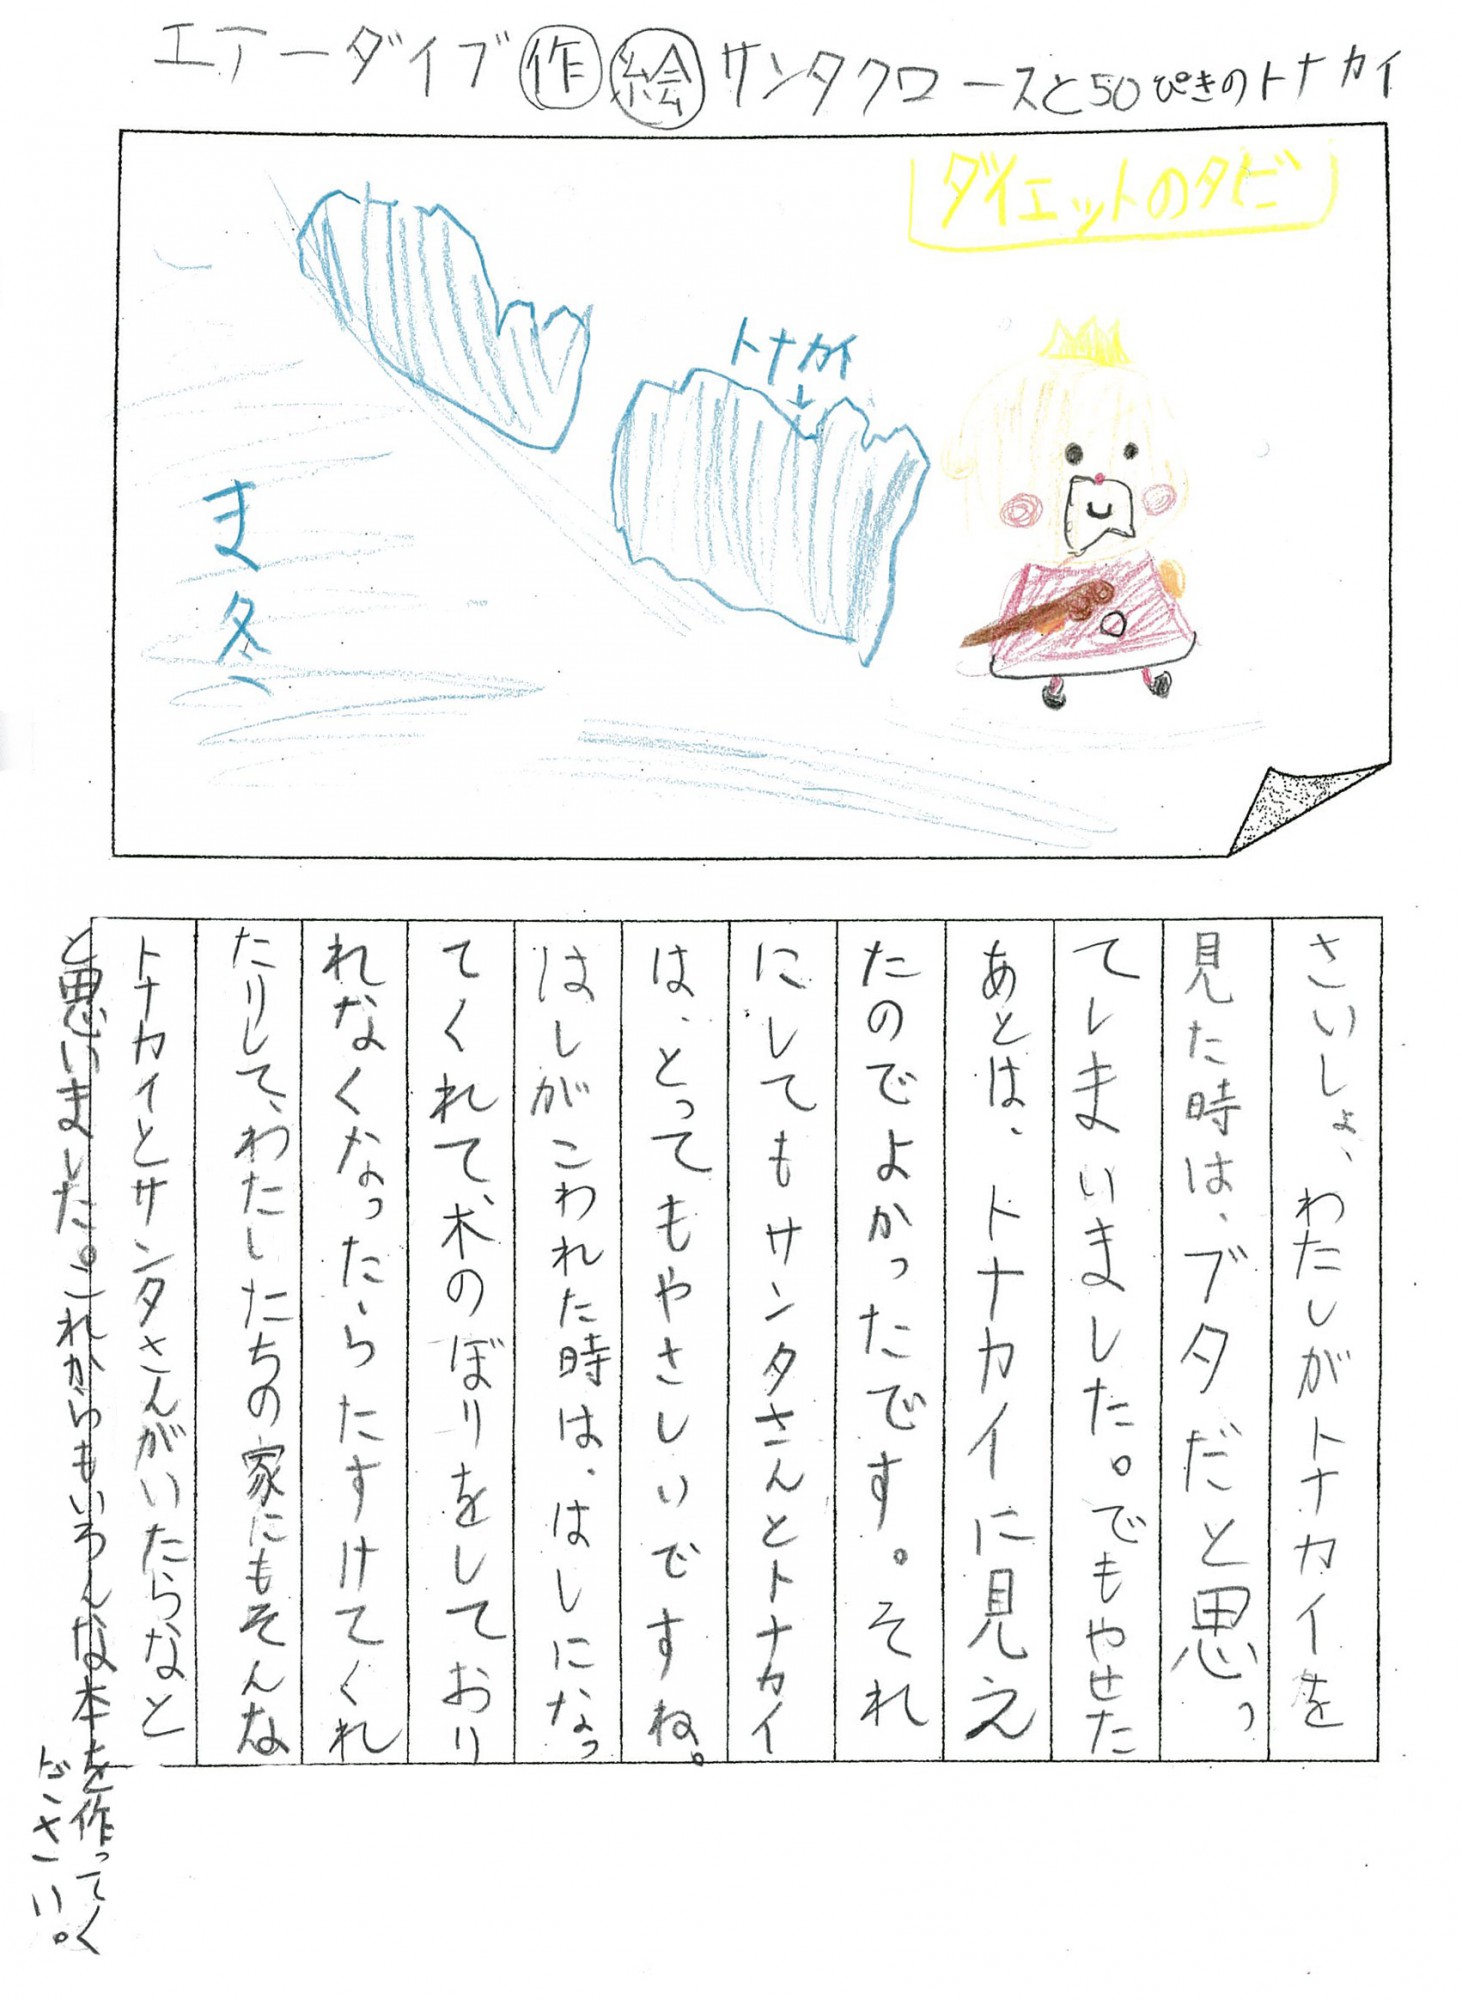 エアーダイブ作絵サンタクロースと50ぴきのトナカイ
ダイエットのタビ
トナカイ
ま冬
さいしょ、わたしがトナカイを
見た時は、ブタだと思っ
てしまいました。でもやせた
あとは、トナカイに見え
たのでよかったです。それ
にしてもサンタさんとトナカイ
は、とってもやさしいですね。
はしがこわれた時は、はしになっ
てくれて、木のぼりをしており
れなくなったらたすけてくれ
たりして、わたしたちの家にもそんな
トナカイとサンタさんがいたらなと
と思いました。これからもいろんな本を作ってく
ださい。